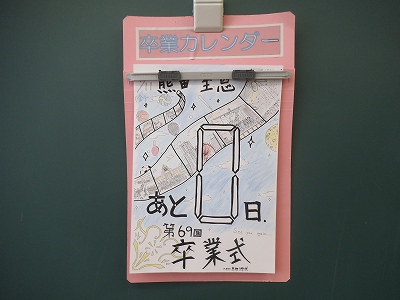 卒業カレンダー
あと0日.
第69回
卒業式